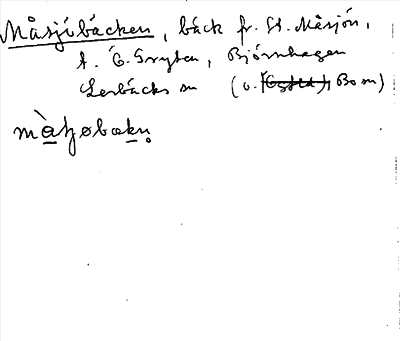 Måsjöbäcken, bäck fr. St. Måsjön,
t. Ö. Gryten, Björnhagen
Lerbäcks sn (o. Bo sn)
màʃøbækn̥